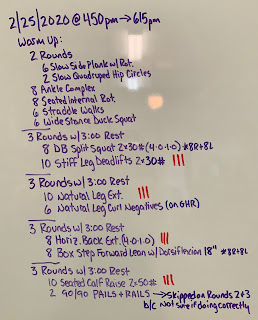 2/25/2020 @ 450pm → 615pm
Warm Up:
2 Rounds
6 Slow Side Plank w/ Rot.
2 Slow Quadruped Hip Circles
8 Ankle Complex
8 Seated Internal Rot.
6 Straddle Walks
6 Wide Stance Duck Squat
3 Rounds w/ 3:00 Rest
8 DB Split Squat 2x30# (4·0·1·0) *8R+8L
10 Stiff Leg Deadlifts 2x30# |||
3 Rounds w/ 3:00 Rest
10 Natural Leg Ext. |||
6 Natural Leg Curl Negatives (on GHR)
3 Rounds w/ 3:00 Rest
8 Horiz. Back Ext. (4·0·1·0) |||
8 Box Step Forward Lean w/ Dorsiflexion 18" *8R+8L
3 Rounds w/ 3:00 Rest
10 Seated Calf Raise 2x50# |||
2 90/90 PAILS + RAILS → Skipped on Rounds 2+3
b/c Not sure if doing correctly